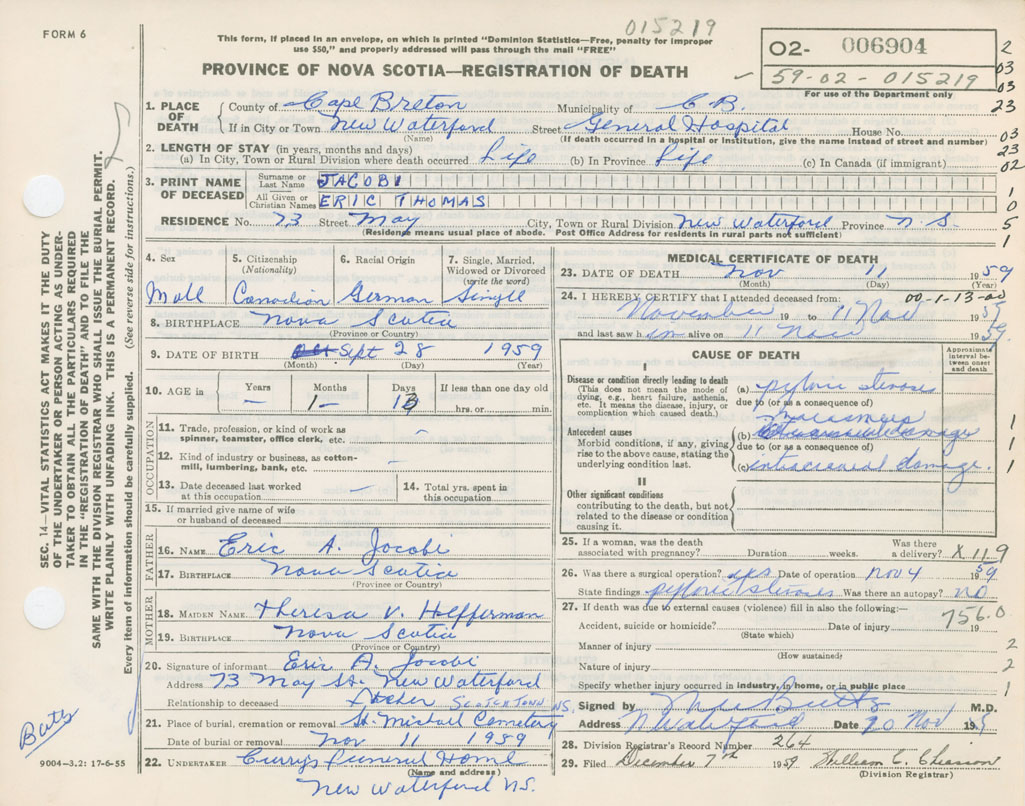 FORM 6
015219
This form, if placed in an envelope, on which is printed "Dominion Statistics—Free, penalty for improper
use $50," and properly addressed will pass through the mail "FREE"
PROVINCE OF NOVA SCOTIA—REGISTRATION OF DEATH
O2- 006904
59-02-015219
For use of the Department only
2
03
03
23
03
23
02
1
0
5
1
1. PLACE OF DEATH
County of Cape Breton Municipality of C B.
If in City or Town New Waterford Street General Hospital House No.
(Name) (If death occurred in a hospital or institution, give the name instead of street and number)
2. LENGTH OF STAY (in years, months and days)
(a) In City, Town or Rural Division where death occurred Life (b) In Province Life (c) In Canada (if immigrant)
3. PRINT NAME OF DECEASED
Surname or Last Name JACOBI
All Given or Christian Names ERIC THOMAS
RESIDENCE No. 73 Street May City, Town or Rural Division New Waterford Province N.S.
(Residence means usual place of abode. Post Office Address for residents in rural parts not sufficient)
4. Sex 5. Citizenship (Nationality) 6. Racial Origin 7. Single, Married, Widowed or Divorced (write the word)
Male Canadian German Single
8. BIRTHPLACE Nova Scotia
(Province or Country)
9. DATE OF BIRTH Oct Sept 28 1959
(Month) (Day) (Year)
10. AGE in Years Months Days If less than one day old
— 1- 13 hrs. or min.
OCCUPATION
11. Trade, profession, or kind of work as spinner, teamster, office clerk, etc. -
12. Kind of industry or business, as cotton-mill, lumbering, bank, etc. -
13. Date deceased last worked at this occupation — 14. Total yrs. spent in this occupation
15. If married give name of wife or husband of deceased
FATHER
16. NAME Eric A. Jacobi
17. BIRTHPLACE Nova Scotia
(Province or Country)
MOTHER
18. MAIDEN NAME Theresa V. Hefferman
19. BIRTHPLACE Nova Scotia
(Province or Country)
20. Signature of informant Eric A. Jacobi
Address 73 May St. New Waterford
Relationship to deceased Father SCOTCHTOWN NS,
21. Place of burial, cremation or removal St. Michael Cemetery
Date of burial or removal Nov 11 1959
22. UNDERTAKER Currys Funeral Home
(Name and address)
New Waterford N.S.
MEDICAL CERTIFICATE OF DEATH
23. DATE OF DEATH Nov 11 1959
(Month) (Day) (Year)
24. I HEREBY CERTIFY that I attended deceased from: 00-1-13-00
November 19 to 11 Nov 1959
and last saw him alive on 11 Nov 1959.
CAUSE OF DEATH
Approximate interval between onset and death
I
Disease or condition directly leading to death
(This does not mean the mode of dying, e.g., heart failure, asthenia, etc. It means the disease, injury, or complication which caused death.)
(a) pyloric stenosis
due to (or as a consequence of)
Antecedent causes
Morbid conditions, if any, giving rise to the above cause, stating the underlying condition last.
(b) marasmus
1
due to (or as a consequence of)
1
(c) intracranial damage.
1
II
Other significant conditions
contributing to the death, but not related to the disease or condition causing it.
25. If a woman, was the death associated with pregnancy? Duration weeks. Was there a delivery? X 119
26. Was there a surgical operation? yes Date of operation Nov 4 1959
State findings pyloric stenosis Was there an autopsy? no
27. If death was due to external causes (violence) fill in also the following:— 756.0
Accident, suicide or homicide? Date of injury 19
(State which)
Manner of injury 2
(How sustained)
Nature of injury 2
Specify whether injury occurred in industry, in home, or in public place 1
Signed by Butts M.D.
Address N Waterford Date 20 Nov 1959
1
28. Division Registrar's Record Number 264
29. Filed December 7th 1959 William C. Chiasson
(Division Registrar)
SEC. 14—VITAL STATISTICS ACT MAKES IT THE DUTY
OF THE UNDERTAKER OR PERSON ACTING AS UNDER-
TAKER TO OBTAIN ALL THE PARTICULARS REQUIRED
IN THE "REGISTRATION OF DEATH" AND TO FILE THE
SAME WITH THE DIVISION REGISTRAR WHO SHALL ISSUE THE BURIAL PERMIT.
WRITE PLAINLY WITH UNFADING INK. THIS IS A PERMANENT RECORD.
Every item of information should be carefully supplied. (See reverse side for instructions.)
Butts
9004-3.2: 17-6-55